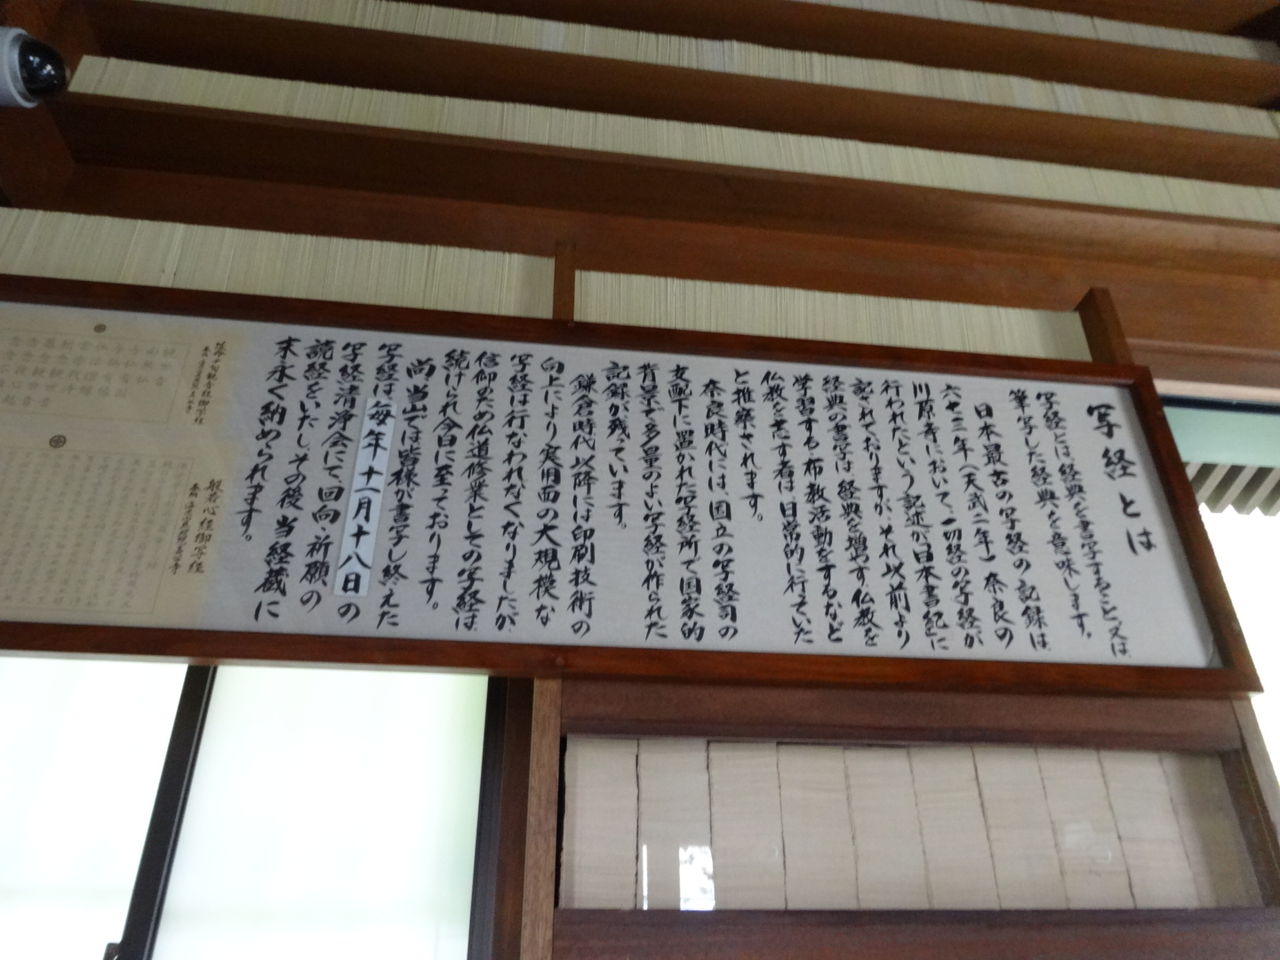 写経とは
写経とは経典を書写すること又は、
筆写した経典を意味します。
日本最古の写経の記録は、
六七三年(天武二年)奈良の
川原寺において、一切経の写経が
行われたという記述が日本書紀に
記されておりますが、それ以前より
経典の書写は経典を増やす、仏教を
学習する、布教活動をするなど
仏教を志す者は日常的に行っていた
と推察されます。
奈良時代には、国立の写経司の
支配下に置かれた写経所で国家的
背景で多量のよい写経が作られた
記録が残っています。
鎌倉時代以降には印刷技術の
向上により実用面の大規模な
写経は行なわれなくなりましたが、
信仰のため仏道修業としての写経は、
続けられ今日に至っております。
尚、当山では皆様が書写し終えた
写経は、毎年十一月十八日の
写経清浄会にて、回向・祈願の
読経をいたし、その後、当経蔵に
末永く納められます。
般若心経御写経